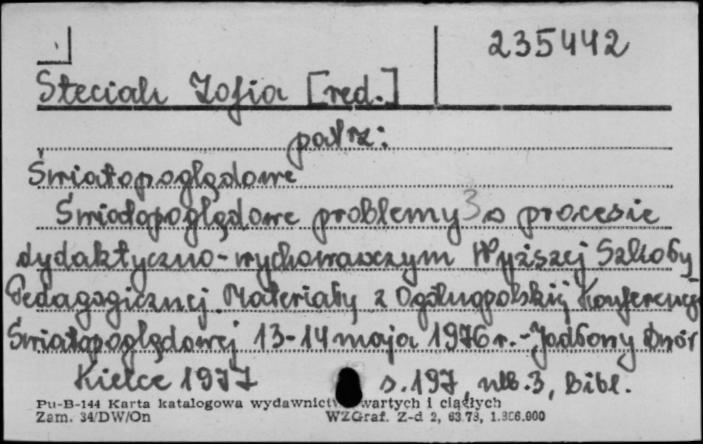 235442
Steciak Zofia [red.]
patrz:
Światopoglądowe
Światopoglądowe problemy 3 w procesie
dydaktyczno-wychowawczym Wyższej Szkoły
Pedagogicznej. Materiały z Ogólnopolskiej Konferencji
Światopoglądowej 13-14 maja 1976 r. - Jodłowy Dwór
Kielce 1977 s. 197, nlb. 3, bibl.
Pu-B-144 Karta katalogowa wydawnictw zwartych i ciągłych
Zam. 34/DW/On WZGraf. Z-d 2, 63.78, 1.306.000